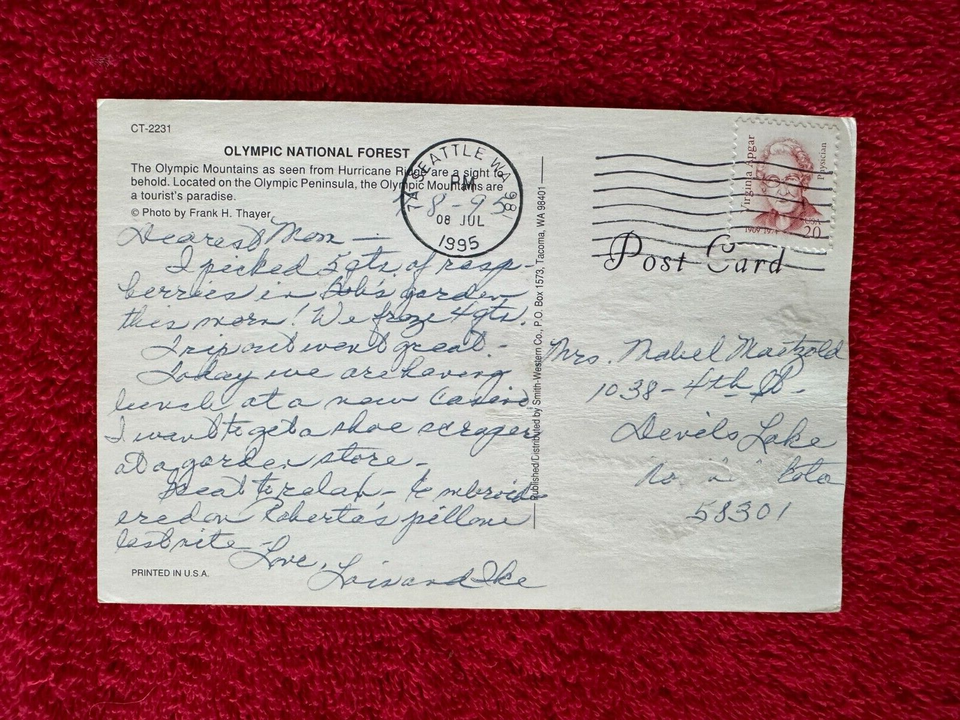 CT-2231
OLYMPIC NATIONAL FOREST
The Olympic Mountains as seen from Hurricane Ridge are a sight to
behold. Located on the Olympic Peninsula, the Olympic Mountains are
a tourist's paradise.
© Photo by Frank H. Thayer
7-8-95
Dearest Mom —
I picked 5 qts. of rasp-
berries in Bob's garden
this morn! We froze 4 qts.
Trip out went great.-
Today we are having
lunch at a new casino
I want to get a shoe scraper
at a garden store-
Great to relax- Embroid-
ered on Roberta's pillow
last nite - Love,
Lois and Ike
PRINTED IN U.S.A.
SEATTLE WA 981
PM
08 JUL
1995
Published/Distributed by Smith-Western Co., P.O. Box 1573, Tacoma, WA 98401
Virginia Apgar
Physician
1909-1974
USA
20
Post Card
Mrs. Mabel Maetzold
1038-4th St-
Devils Lake
No
58301